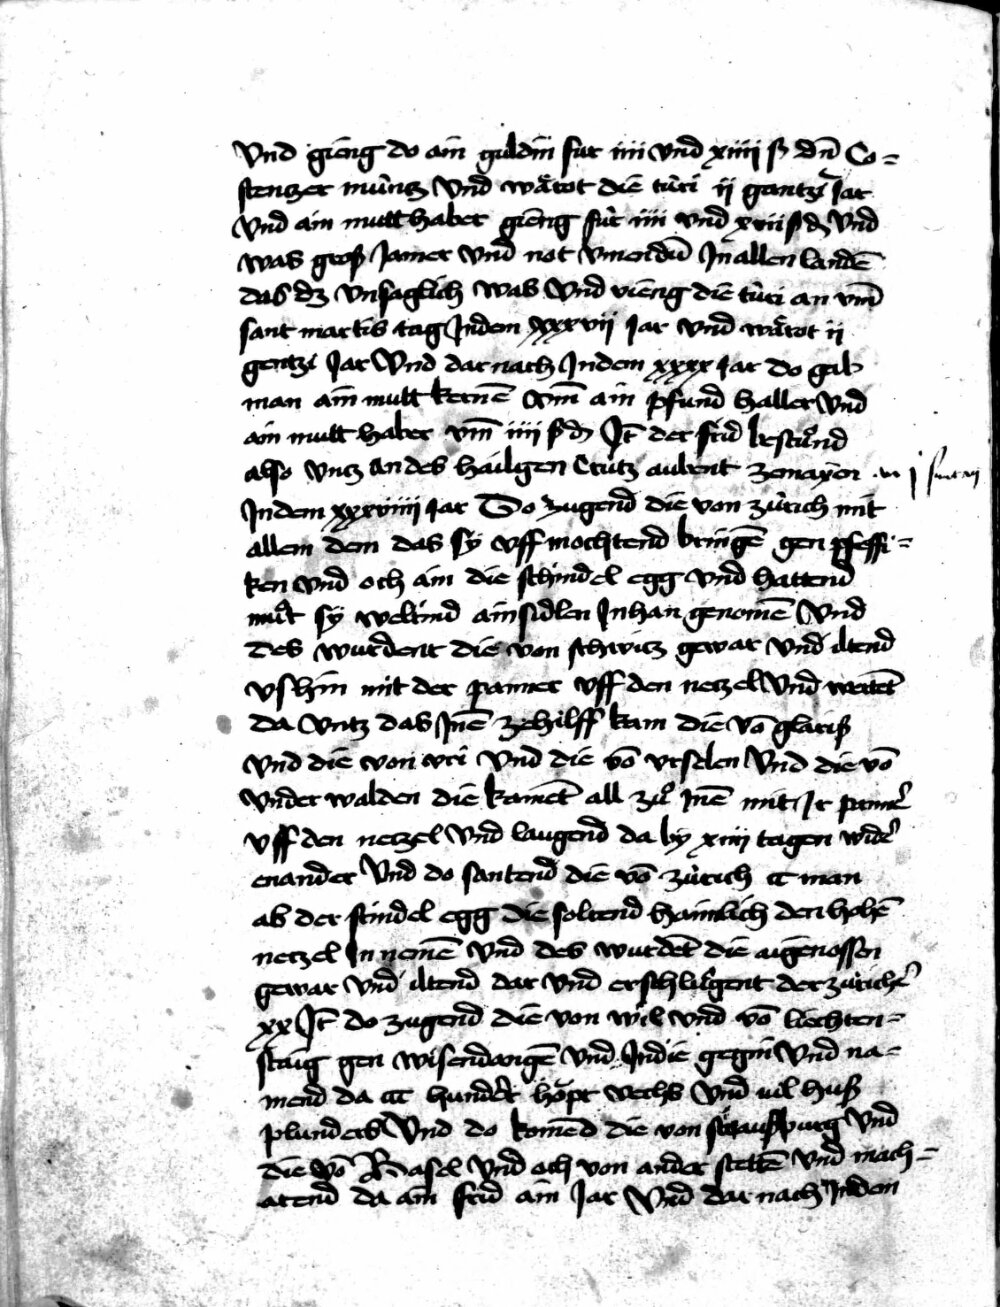 Vnd gieng do ain guldin für iiii vnd xiiii ß dñ Co=
stenzer müntz Vnd wärot die türi ij gantzi Jar
Vnd ain mutt haber gieng für iiii vnd xviii ß ₰ Vnd
was groß Jamer Vnd not Vmendū Jn allen landē
das dz vnsaglich was Vnd vieng die türi an vm̄
sant martis tag Jndem xxxvii Jar vnd wärot ii
gentzi Jar Vnd dar nach Jndem xxxx Jar do gab
man ain mutt kernē vm̄ ain pfund haller Vnd
ain mutt haber vm̄ iiii ß ₰ Jt̄ der frid bestuͦnd
also vntz an des hailgen Crütz aubent ze mayen
Jndem xxxviiii Jar Do zugend die von zürich mit
allem dem das sy vff mochtend bringē gen pfeffi=
ken vnd och ain die schindel egg vnd hattend
muͦt sy weltind ainsidlen Jnhan genomē Vnd
des wurdent die von schwitz gewar vnd iltend
vshin mit der panner vff den netzel Vnd
da vntz das Jnē ze hilff kam die vō glariß
Vnd die von vri Vnd die vō vrselen Vnd die vō
vnder walden die kamēt all zuͦ Jnē mit Jr panner
vff den netzel Vnd laugend da by xiiii tagen wider
enander Vnd do santend die vō zürich cc man
ab der schindel egg die soltend haimlich den hohē
netzel Jn nemē Vnd des wurdēt die aigenossen
gewar Vnd iltend dar Vnd erschluͦgent der züricher
xx Jt̄ do zugend die von wil vnd vō liechten=
staig gen wisendangē vnd Jndie gegni Vnd na=
mend da cc hundert höpt vechs Vnd vil huß
plunders Vnd do komēd die von straußpurg Vnd
die vō Basel Vnd och von ander stettē vnd mach=
atend da ain frid ain Jar Vnd dar nach Jndem